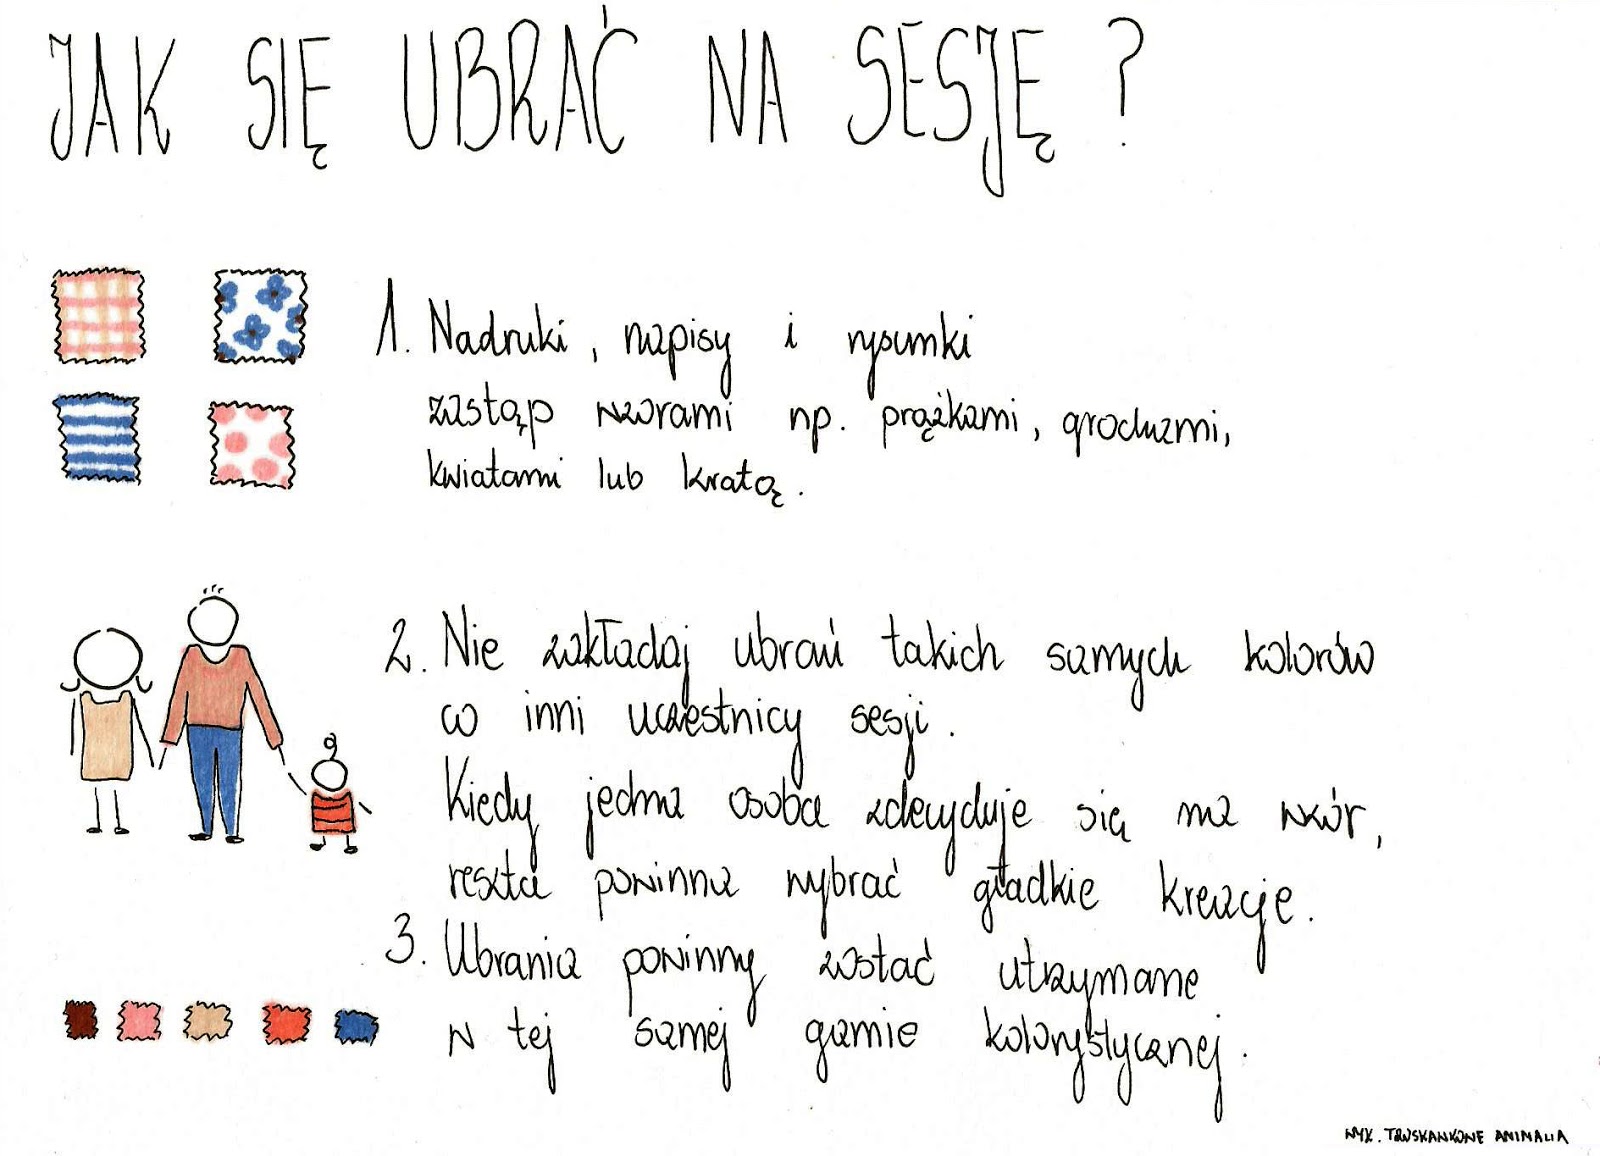 JAK SIĘ UBRAĆ NA SESJĘ ?
1. Nadruki, napisy i rysunki
zastąp wzorami np. prążkami, grochami,
kwiatami lub kratą.
2. Nie zakładaj ubrań takich samych kolorów
co inni uczestnicy sesji.
Kiedy jedna osoba zdecyduje się na wzór,
reszta powinna wybrać gładkie kreacje.
3. Ubrania powinny zostać utrzymane
w tej samej gamie kolorystycznej.
WYK. TRUSKAWKOWE ANIMALIA